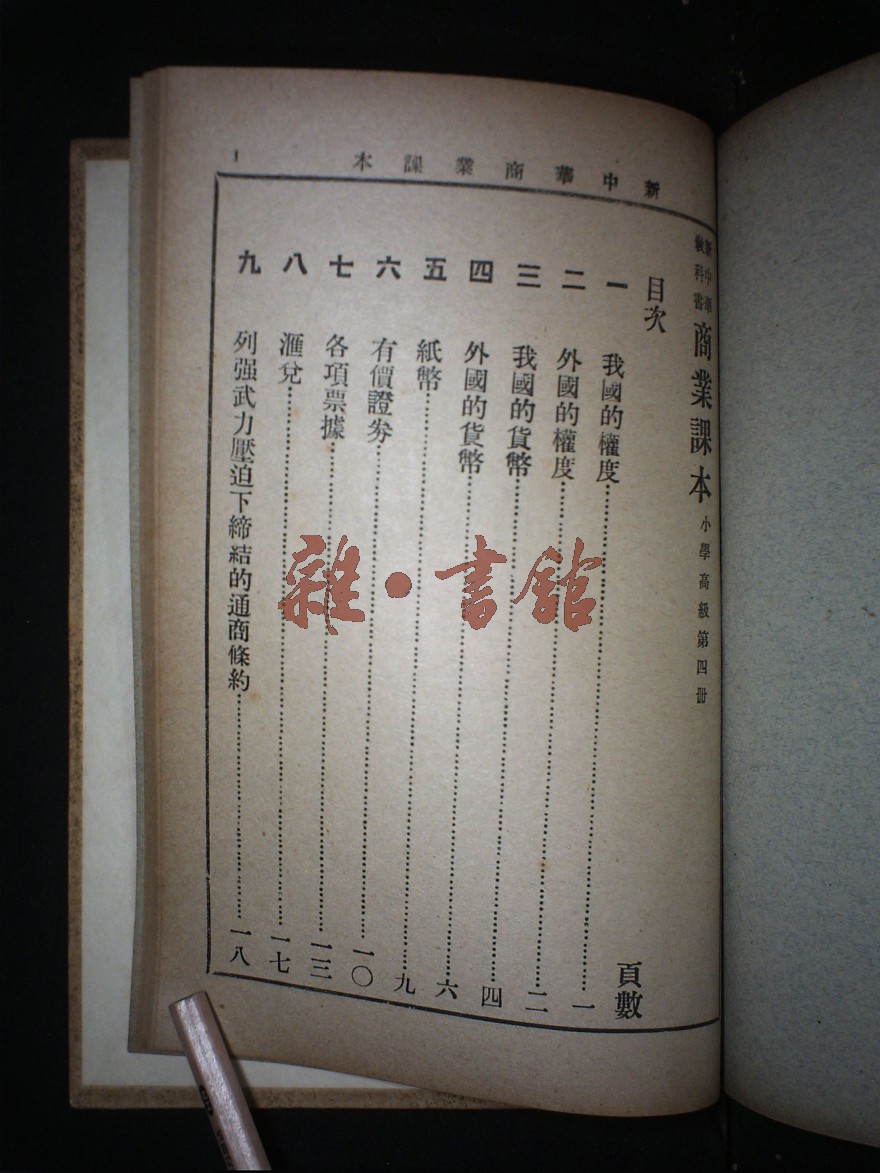 新中華商業課本
1
新中華教科書 商業課本 小學高級第四册
目次 頁數
一 我國的權度……一
二 外國的權度……二
三 我國的貨幣……四
四 外國的貨幣……六
五 紙幣……九
六 有價證券……一〇
七 各項票據……一三
八 滙兌……一七
九 列强武力壓迫下締結的通商條約……一八
雜·書館